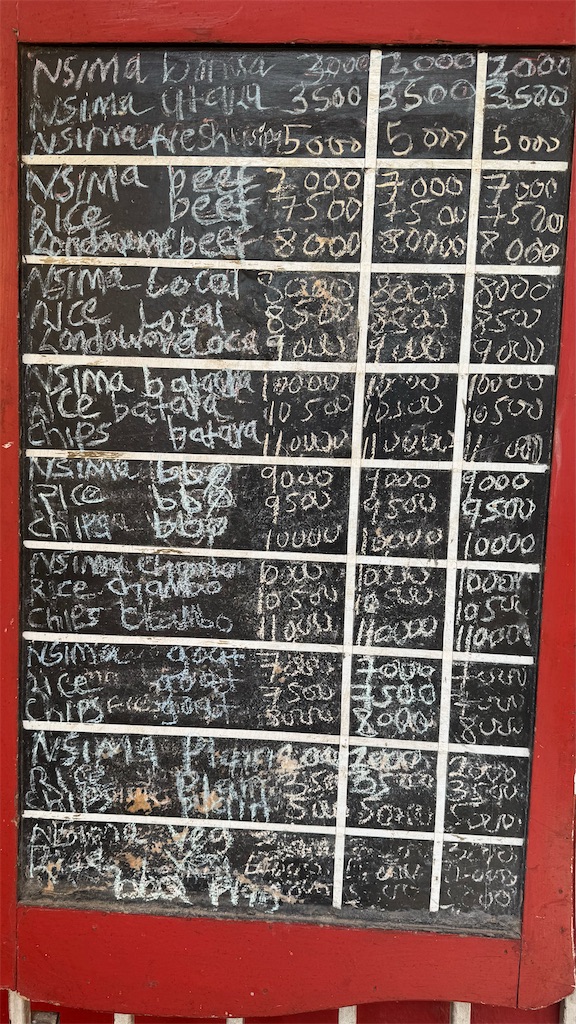 Nsima bonsa 3000 3000 3000
Nsima utaka 3500 3500 3500
Nsima fresh usipa 5000 5000 5000
Nsima beef 7000 7000 7000
Rice beef 7500 7500 7500
Kondowole beef 8000 8000 8000
Nsima Local 8000 8000 8000
Rice Local 8500 8500 8500
Kondowole Local 9000 9000 9000
Nsima batala 10000 10000 10000
Rice batala 10500 10500 10500
Chips batala 11000 11000 11000
Nsima bbq 9000 9000 9000
Rice bbq 9500 9500 9500
Chips bbq 10000 10000 10000
Nsima chambo 10000 10000 10000
Rice chambo 10500 10500 10500
Chips Chambo 11000 11000 11000
Nsima goat 7000 7000 7000
Rice goat 7500 7500
Chips goat 8000 8000 8000
Nsima Plain 2000 2000 2000
Rice Plain 3500 3500
Chips Plain 5000 5000 5000
Nsima Veg
Veg